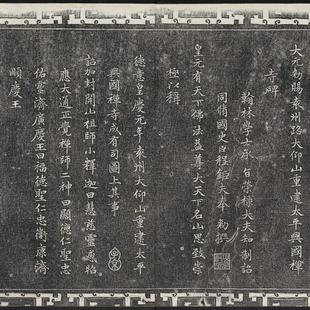 大元勑賜袁州路大仰山重建太平興國禪
寺碑
翰林學士承旨榮祿大夫知制誥
同脩國史臣程鉅夫奉勑撰
皇元有天下佛法益尊大天下名山思致崇
極以稱
德意皇慶元年袁州大仰山重建太平
興國禪寺成有司圖上其事
詔加封開山祖師小釋迦曰慧慈靈感昭
應大通正覺禪師二神曰顯德仁聖忠
佑靈濟廣慶王曰福德聖仁忠衛康濟
順慶王